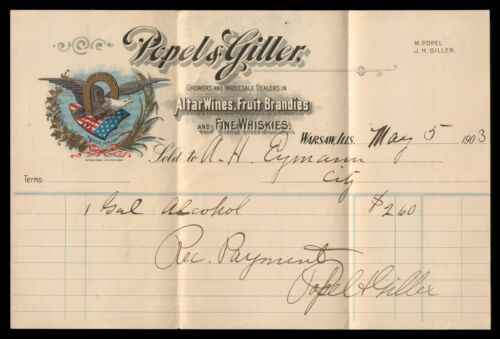 Popel & Giller,
M. POPEL.
J. H. GILLER.
GROWERS AND WHOLESALE DEALERS IN
Altar Wines, Fruit Brandies
AND FINE WHISKIES.
WARSAW, ILLS. May 5 1903
Sold to A. H. Eymann
City
Terms
1 Gal Alcohol $2.60
Rec. Payment
Popel & Giller